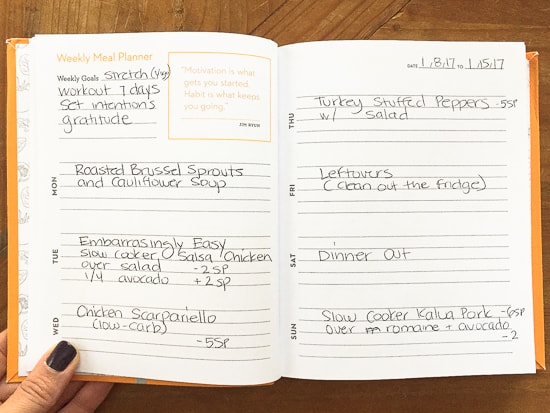 Weekly Meal Planner
Weekly Goals stretch (yoga)
workout 7 days
set intentions
gratitude
"Motivation is what
gets you started.
Habit is what keeps
you going."
JIM RYUN
MON
Roasted Brussel Sprouts
and Cauliflower Soup
TUE
Embarrasingly Easy
slow cooker Salsa Chicken
over salad -2SP
1/4 avocado +2SP
WED
Chicken Scarpariello
(low-carb)
-5SP
DATE 1/8/17 TO 1/15/17
THU
Turkey Stuffed Peppers -5SP
w/ Salad
FRI
Leftovers
(clean out the fridge)
SAT
Dinner out
SUN
Slow Cooker Kalua Pork -6SP
over romaine + avocado
-2